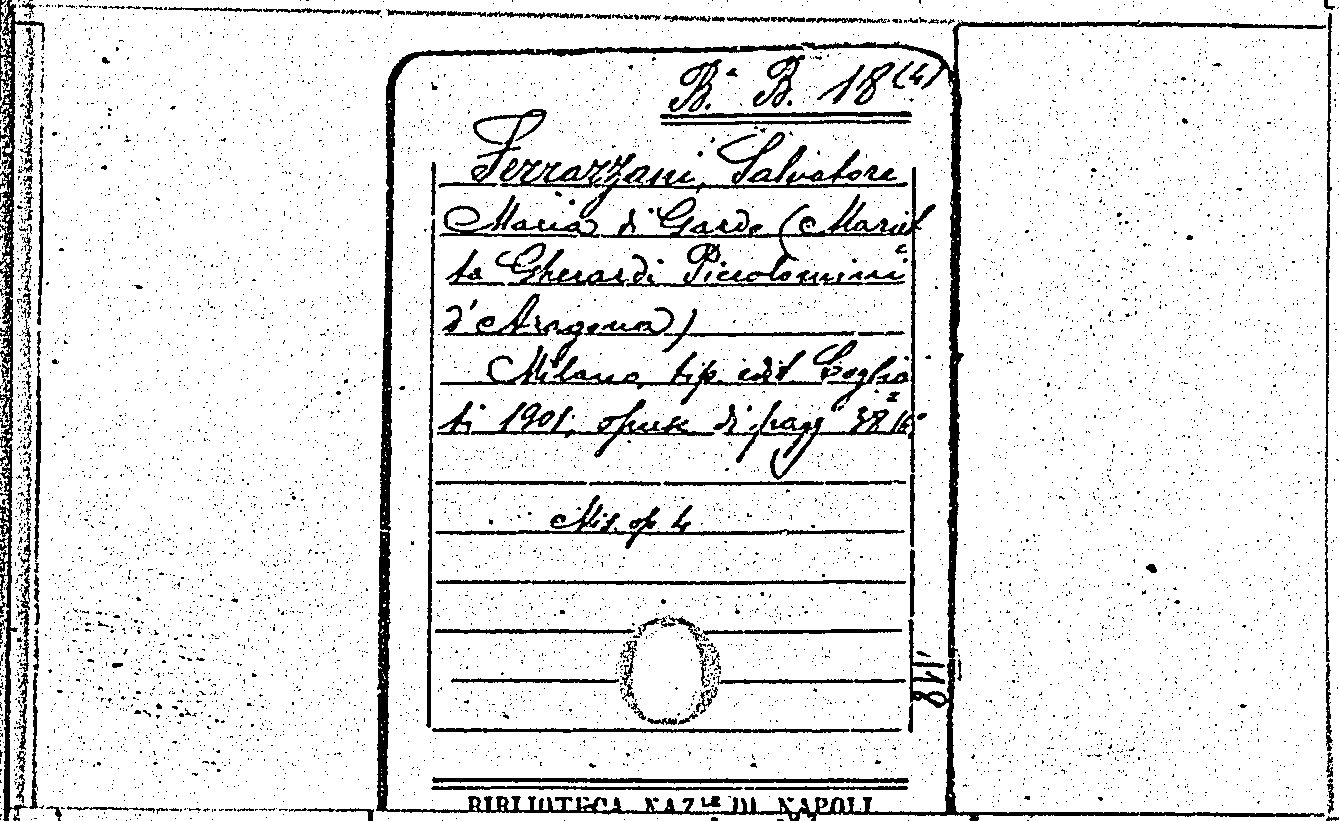 Bª. B. 18(4)
Ferrazzani, Salvatore
Maria di Gardo (Mariet
ta Gherardi Piccolomini
d'Aragona)
Milano, tip. edit. Coglia
ti 1901, opusc. di pagg. 38 16°
Mis. op. 4
118
BIBLIOTECA NAZ.LE DI NAPOLI